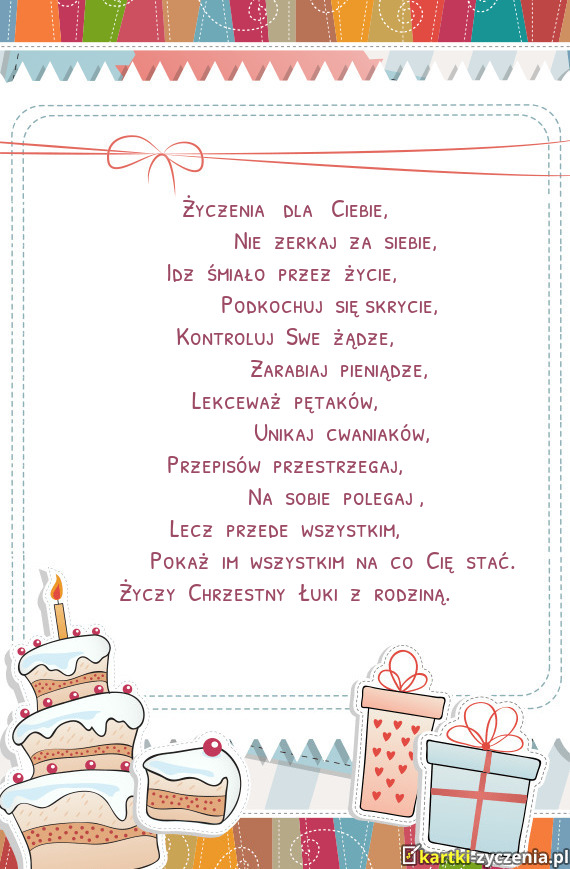 Życzenia dla Ciebie,
Nie zerkaj za siebie,
Idz śmiało przez życie,
Podkochuj się skrycie,
Kontroluj Swe żądze,
Zarabiaj pieniądze,
Lekceważ pętaków,
Unikaj cwaniaków,
Przepisów przestrzegaj,
Na sobie polegaj ,
Lecz przede wszystkim,
Pokaż im wszystkim na co Cię stać.
Życzy Chrzestny Łuki z rodziną.
kartki-zyczenia.pl